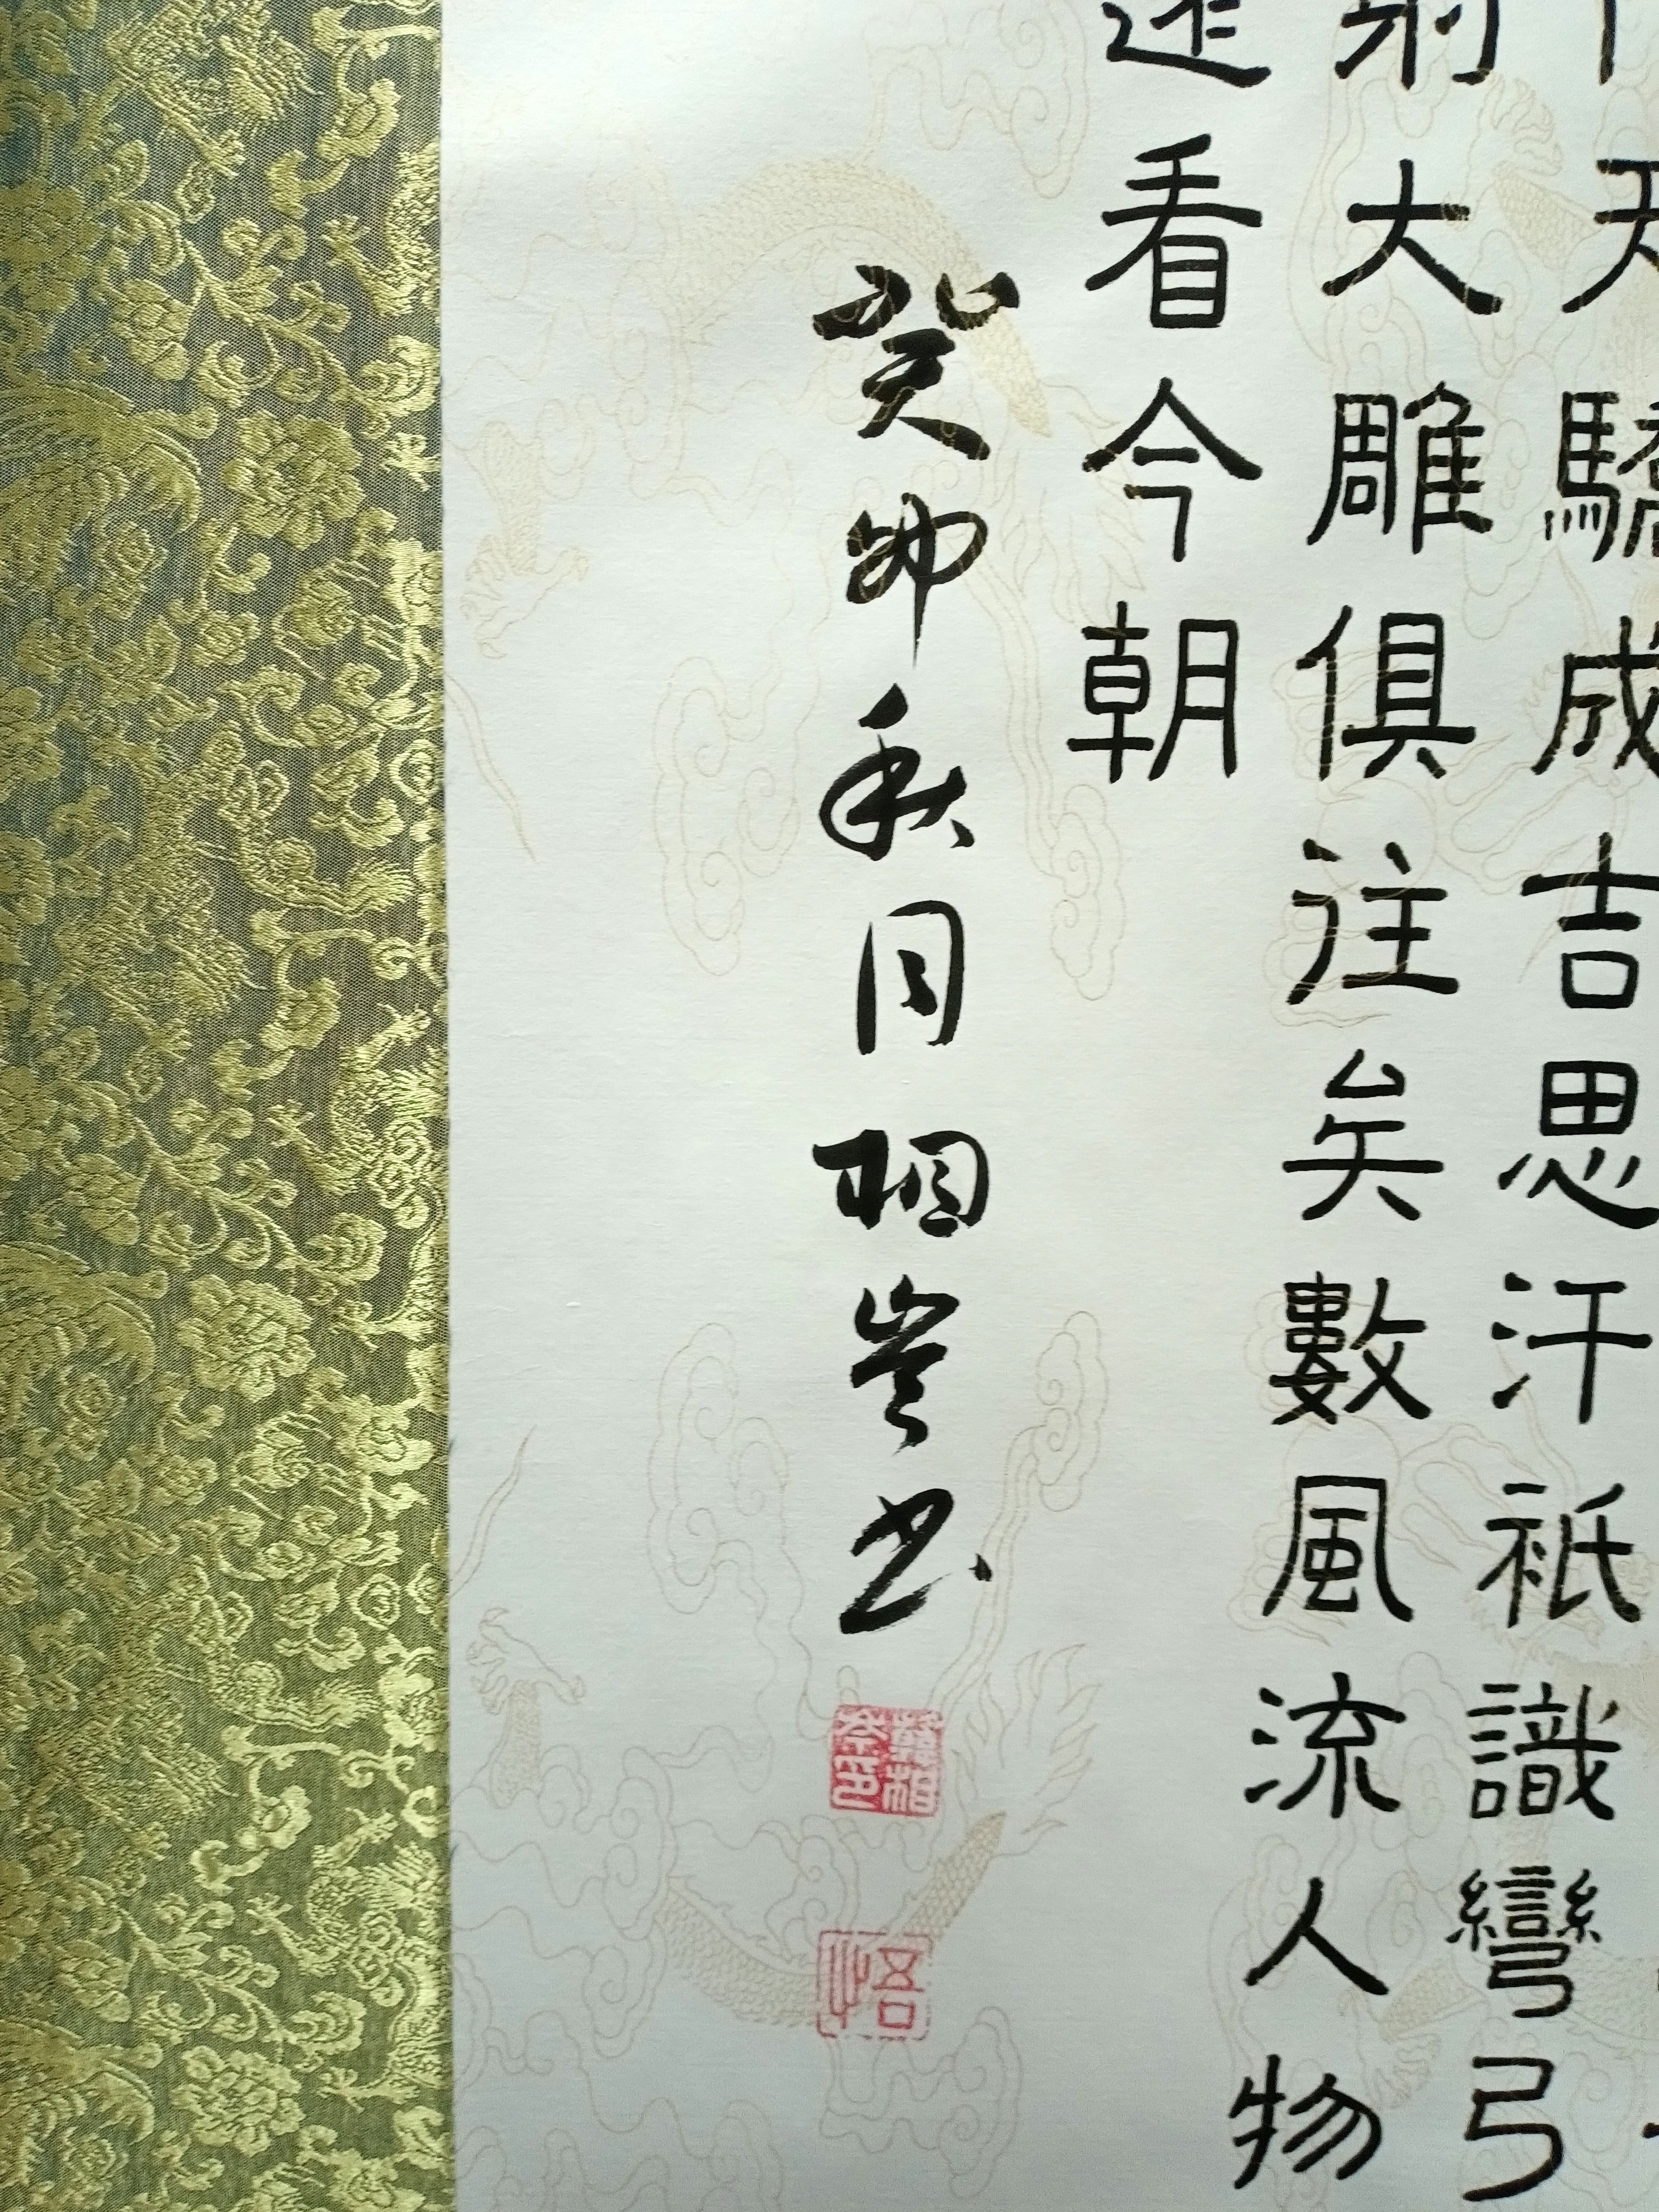 天驕成吉思汗祇識彎弓
射大雕俱往矣數風流人物
還看今朝
癸卯秋月相岑书
悟